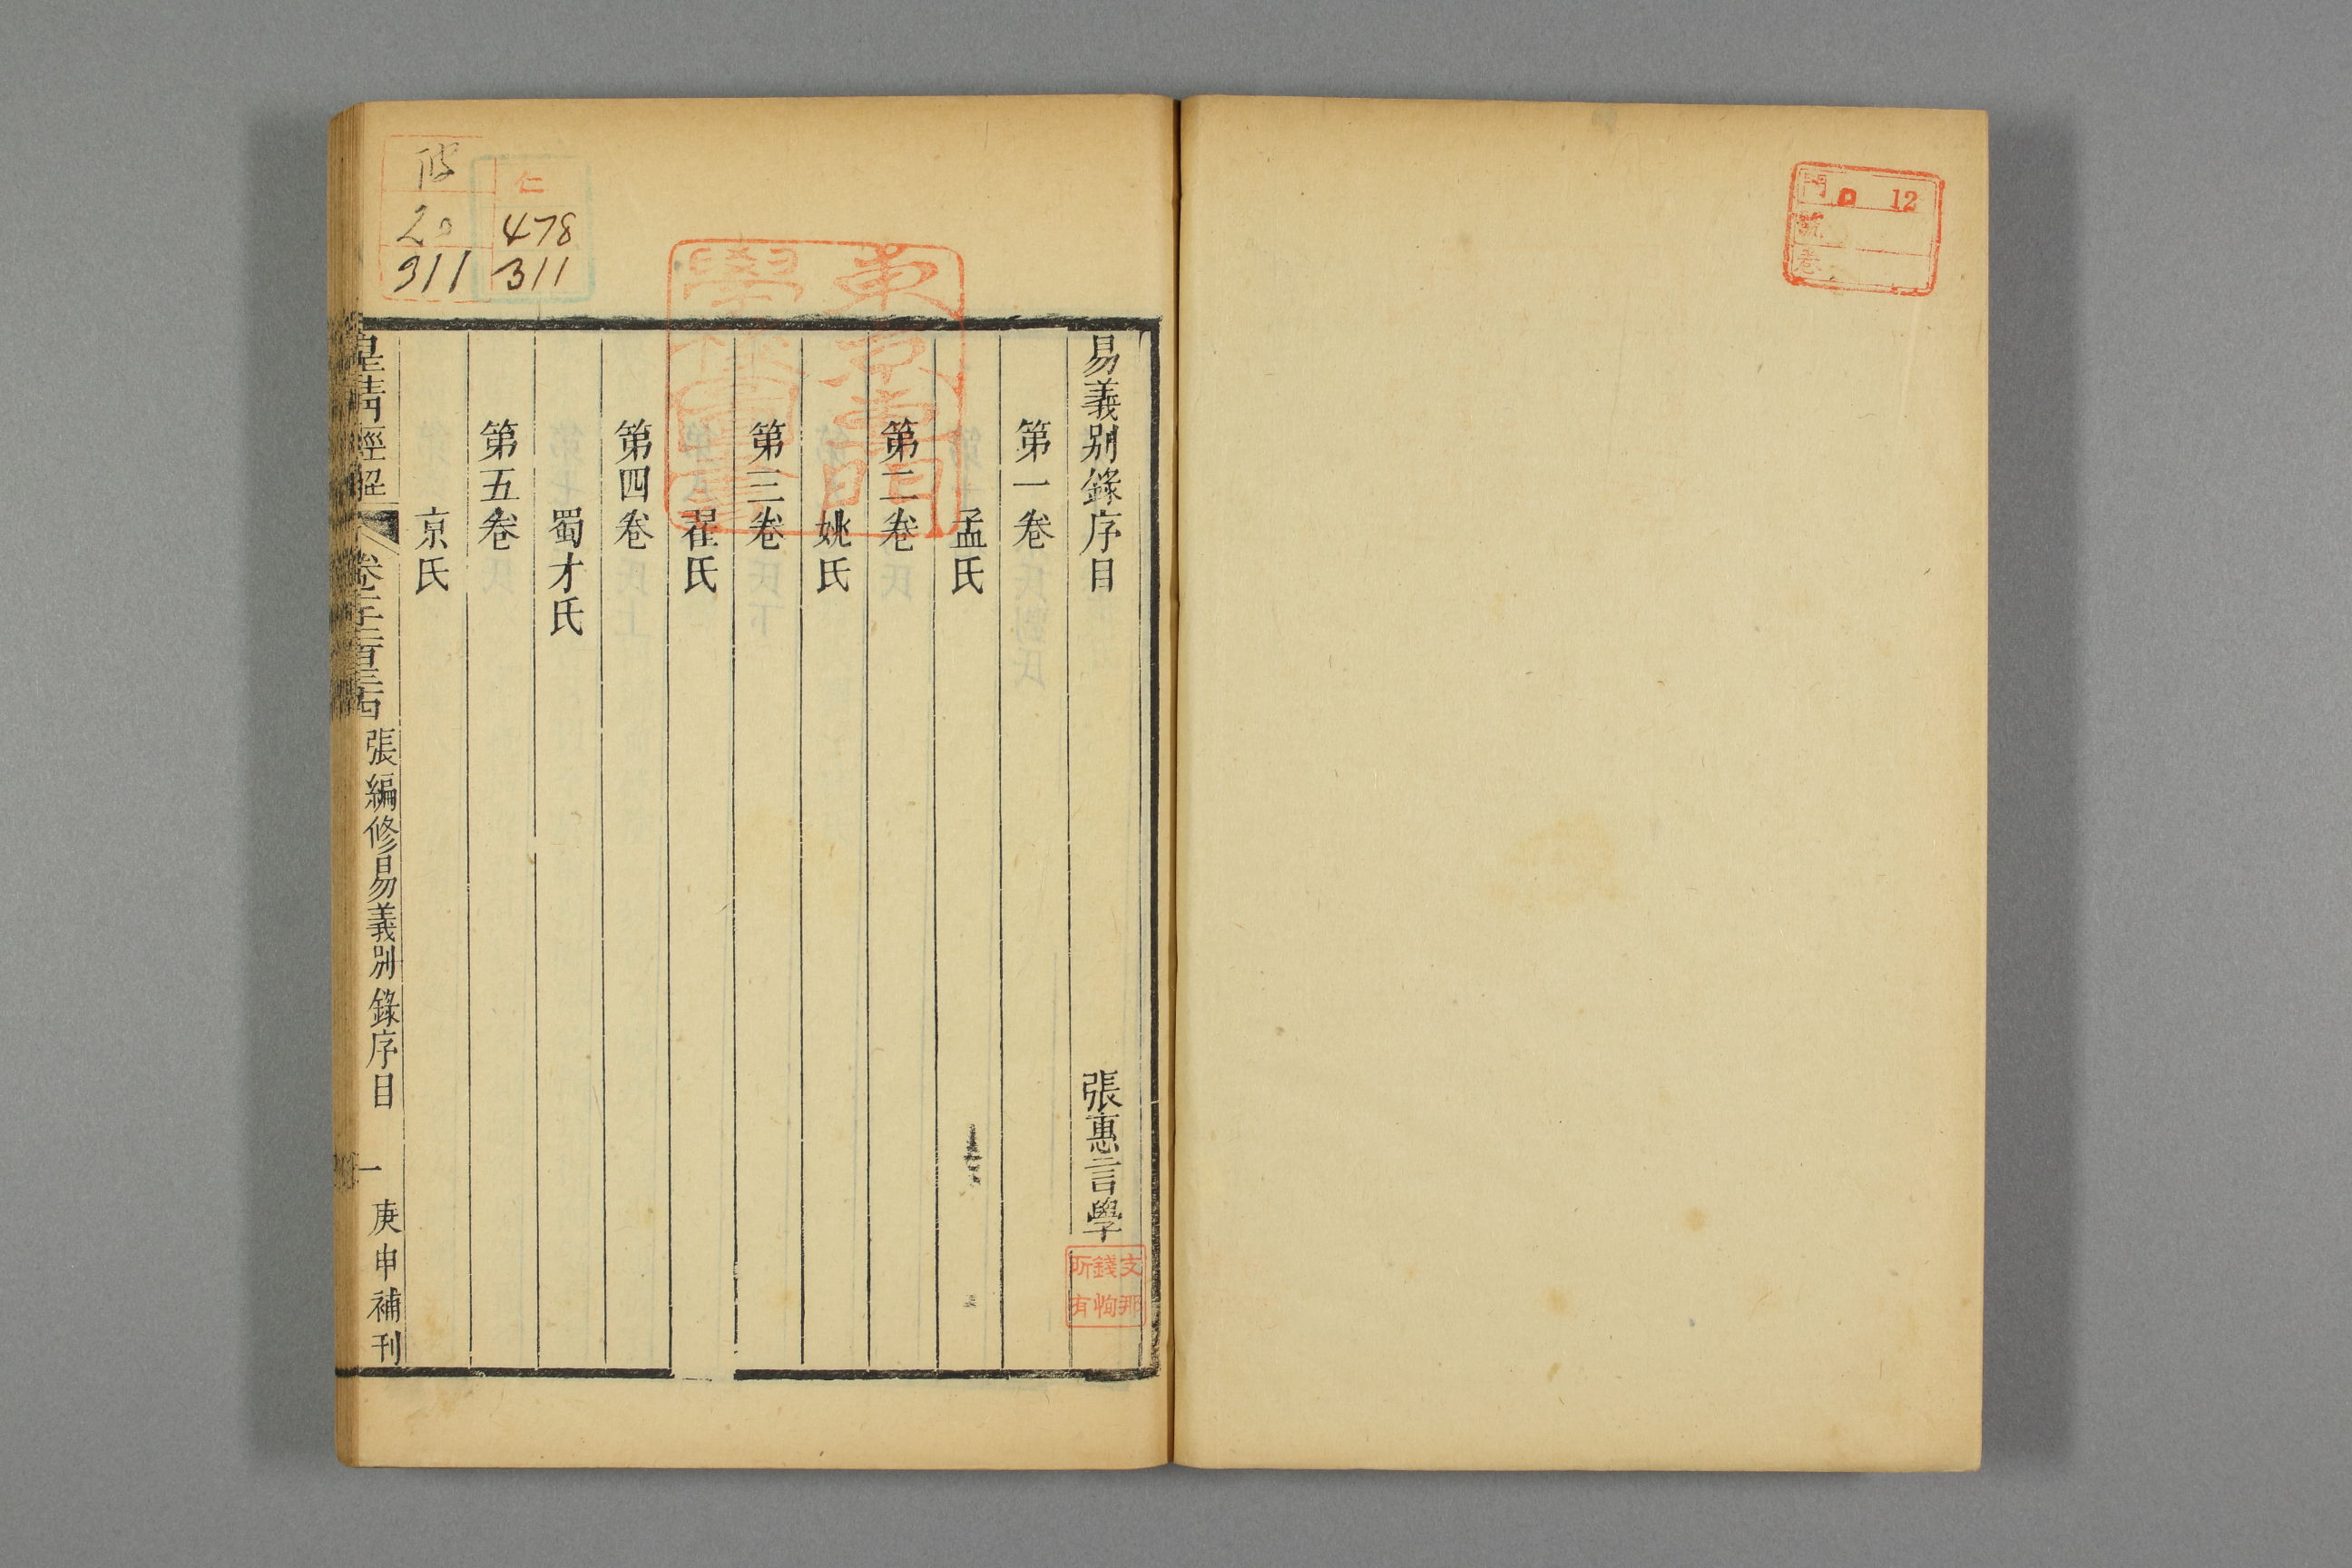 門 12
號
巻
易義别錄序目 張惠言學
第一卷
孟氏
第二卷
姚氏
第三卷
翟氏
第四卷
蜀才氏
第五卷
京氏
皇清經解 卷千二百三十四 張編修易義別錄序目 一 庚申補刊
支那
錢恂
所有
東京専門
學校圖書
仁
478
311
20
311